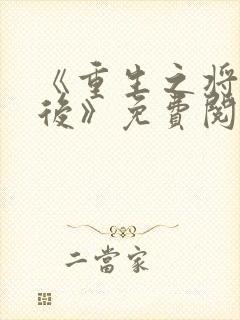 《重生之将
後》免費閱
二當家